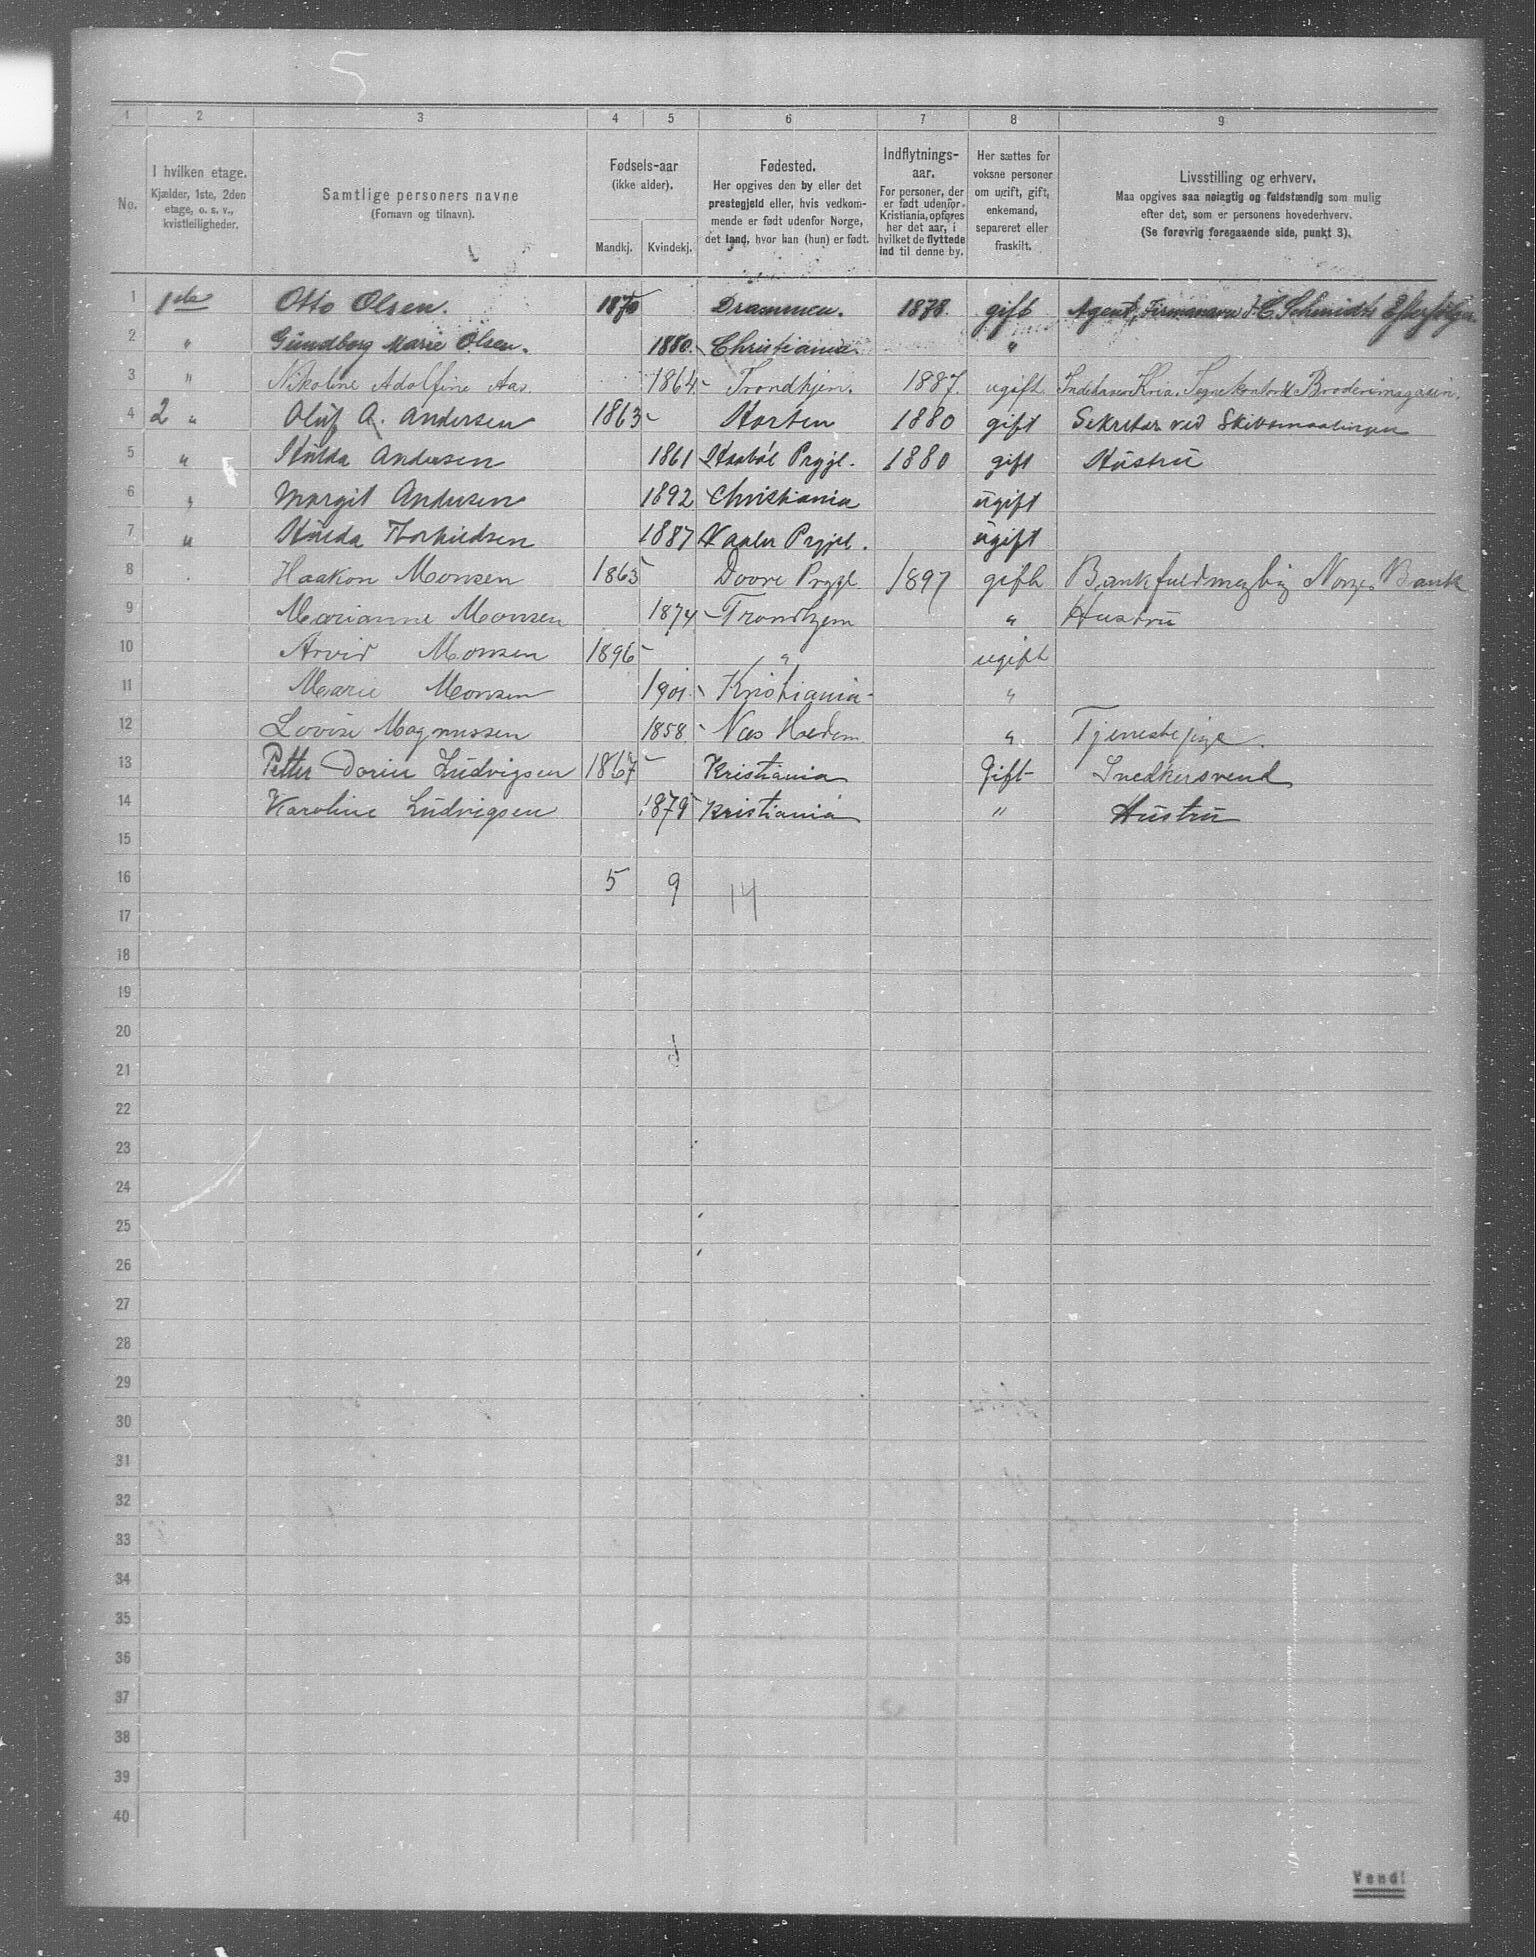 5
1 2 3 4 5 6 7 8 9
No.
I hvilken etage.
Kjælder, 1ste, 2den
etage, o. s. v.,
kvistleiligheder.
Samtlige personers navne
(Fornavn og tilnavn).
Fødsels-aar
(ikke alder).
Mandkj. Kvindekj.
Fødested.
Her opgives den by eller det
prestegjeld eller, hvis vedkom-
mende er født udenfor Norge,
det land, hvor han (hun) er født.
Indflytnings-
aar.
For personer, der
er født udenfor
Kristiania, opføres
her det aar, i
hvilket de flyttede
ind til denne by.
Her sættes for
voksne personer
om ugift, gift,
enkemand,
separeret eller
fraskilt.
Livsstilling og erhverv.
Maa opgives saa nøiagtig og fuldstændig som mulig
efter det, som er personens hovederhverv.
(Se forøvrig foregaaende side, punkt 3).
1 1ste Otto Olsen. 1870 Drammen. 1878. gift Agent, Firmanavn J. C. Schmidts Efterfølger
2 " Gundborg Marie Olsen. 1880. Christiania "
3 " Nikoline Adolfine Aas. 1864 - Trondhjem. 1887. ugift Indehaver Kria. Tegnekontor & Broderimagasin.
4 2 " Oluf A. Andersen 1863 - Horten 1880 gift Sekretær ved Skibsmaalingen
5 " Hulda Andersen 1861 Haabøl Prgjl. 1880 gift Hustru
6 " Margit Andersen 1892 Christiania ugift
7 " Hulda Thorkildsen 1887 Vaaler Prgjel. ugift
8 Haakon Monsen 1865 Dovre Prgjl 1897 gift Bankfuldmegtig Norges Bank
9 Marianne Monsen 1874 - Trondhjem " Hustru
10 Arvid Monsen 1896 - " ugift
11 Marie Monsen 1901 - Kristiania - "
12 Lovise Magnussen 1858 - Næs Hedem. " Tjenestepige.
13 Petter Dorius Ludvigsen 1867 - Kristiania Gift Snedkersvend
14 Karoline Ludvigsen 1879 Kristiania " Hustru
15
16 5 9 14
17
18
19
20
21
22
23
24
25
26
27
28
29
30
31
32
33
34
35
36
37
38
39
40
Vend!